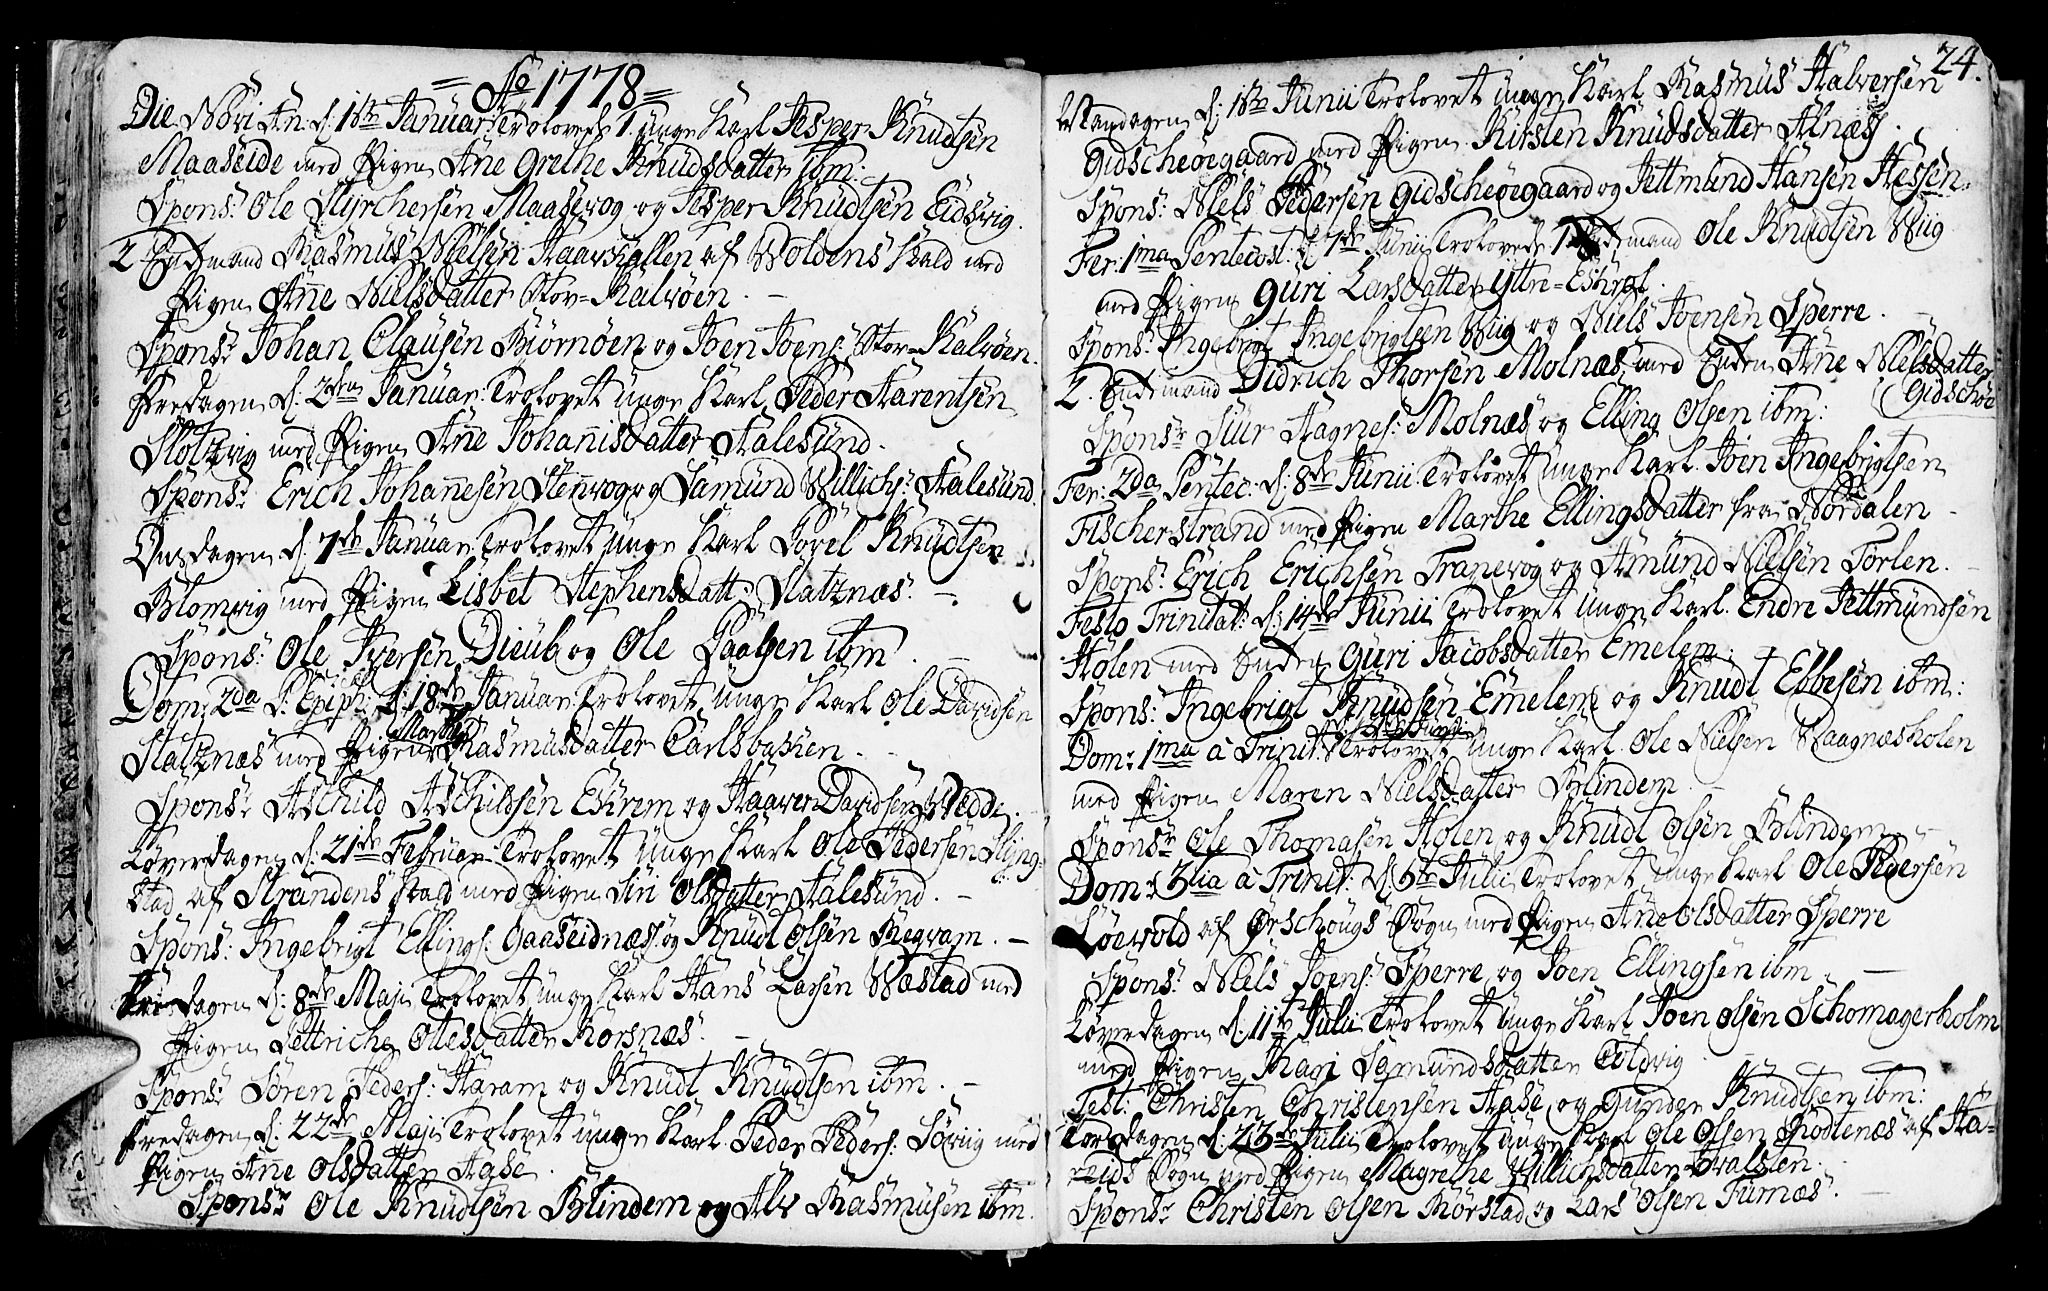 = Ao 1778 =
Die Novi An. d: 1ste Januar: Trolovede 1. unge Karl Jesper Knudtsen
Maaseide med Pigen Ane Grethe Knudsdatter ibm:
Spons: Ole Styrchersen Maasevog og Jesper Knudtsen Eidsvig.
2 Enckemand Rasmus Nielsen Haavkallen af Woldens Kald med
Pigen Anne Nielsdatter Stor=Kalvøen. -
Sponsr Johan Clausen Biørnøen og Joen Joens: Stor=Kalvøen.
Fredagen d: 2den Januar: Trolovet unge Karl Peder Harentsen
Slotzvig med Pigen Anne Johannisdatter Aalesund.
Sponsr Erich Johannesen Stenvog og Samund Willichs: Aalesund.
Onsdagen d: 7de Januar: Trolovet unge Karl Povel Knudtsen
Blomvig med Pigen Lisbet Stephensdatt: Slatznæs. -
Spons: Ole Iversen Dieub og Ole Paalsen ibm. -
Dom: 2da P: Epiph: d: 18de Januar: Trolovet unge Karl Ole Davidsen
Slatznæs med Pigen Marthe Rasmusdatter Carlsbakken. -
Sponsr Aschild Aschildsen Eskrem og Haaver Davidsen Nedde. -
Løverdagen d: 21de Februar: Trolovet unge Karl Ole Pedersen Slyng-
stad af Strandens Kald med Pigen Siri Olsdatter Aalesund. -
Spons: Ingebrigt Ellings: Gaaseidnæs og Knudt Olsen Rogvam. -
Fri-dagen d: 8de Maji Trolovet unge Karl Hans Larsen Wæstad med
Pigen Pettriche Olesdatter Korsnæs. -
Sponsr Søren Peders: Haram og Knudt Knudtsen ibm. -
Fredagen d: 22de Maji Trolovet unge Karl Peder Peders: Søviig med
Pigen Anne Olsdatter Aase.
Sponsr Ole Knudtsen Blindem og Alv Rasmusen ibm.
24.
Mandagen d: 1ste Junii Trolovet unge Karl Rasmus Halversen
Gidscheøegaard med Pigen Kirsten Knudsdatter Alnæs.
Spons: Niels Pedersen Gidscheøegaard og Pettmund Hansen Hessen.
Fer: 1ma Pentecost: d: 7de Junii Trolovede 1 Enckemand Ole Knudtsen Wiig
med Pigen Guri Larsdatter Yttr=Eskrol.
Sponsr Ingebrigt Ingebrigtsen Wiig og Niels Joensen Sperre. -
2. Enckemand Didrich Thorsen Molnæs med Enken Anne Nielsdatter
Gidschøe
Sponsr Siur Hagnes: Molnæs og Elling Olsen ibm:
Fer: 2da Pentec: d: 8de Junii Trolovet unge Karl Joen Ingebrigtsen
Fischerstrand med Pigen Marthe Ellingsdatter fra Nordalen -
Spons: Erich Erichsen Tranevog og Amund Nielsen Torlen. -
Festo Trinitat: d: 14de Junii Trolovet unge Karl Endre Pettmundsen
Holen med Enken Guri Jacobsdatter Emelem. -
Spons: Ingebrigt Knudsen Emelem og Knudt Ebbesen ibm:
Dom: 1ma à Trinit: d: 21de Junii Trolovet unge Karl Ole Nielsen Waagnæsholen
med Pigen Maren Nielsdatter Blindem
Sponsr Ole Thomasen Holen og Knudt Olsen Blindem -
Dom: 3tia à Trinit: d: 5te Julii Trolovet unge Karl Ole Pedersen
Løevold af Ørschougs Sogn med Pigen Ane Olsdatter Sperre
Spons: Niels Joens: Sperre og Joen Ellingsen ibm. -
Løverdagen d: 11te Julii Trolovet unge Karl Joen Olsen Schomagerholm
med Pigen Mari Semundsdatter Coldvig
Test: Christen Christensen Aase og Gunder Knudtsen ibm:
Torsdagen d: 23de Julii Trolovet unge Karl Ole Olsen Rødtenæs af Ha-
reids Sogn med Pigen Magrethe Willichsdatter Hralsten.
Sponsr Christen Olsen Rørstad og Lars Olsen Furnæs. -